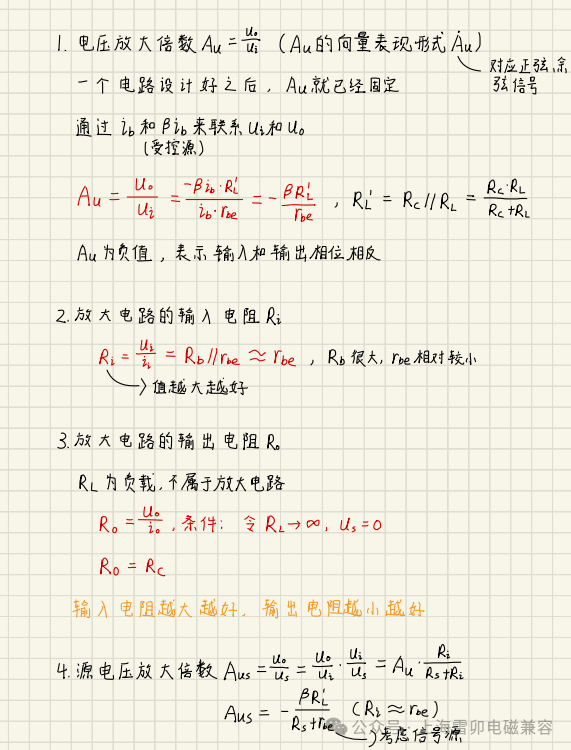 1. 电压放大倍数 Au = uo/ui (Au的向量表现形式 Ȧu)
对应正弦,余弦信号
一个电路设计好之后, Au就已经固定
通过 ib 和 βib 来联系 ui 和 uo
(受控源)
Au = uo/ui = -βib·RL'/ib·rbe = -βRL'/rbe , RL' = Rc//RL = Rc·RL/Rc+RL
Au为负值, 表示输入和输出相位相反
2. 放大电路的输入电阻 Ri
Ri = ui/ii = Rb//rbe ≈ rbe , Rb很大, rbe相对较小
值越大越好
3. 放大电路的输出电阻 Ro
RL为负载, 不属于放大电路
Ro = uo/io , 条件: 令 RL→∞, us=0
Ro = Rc
输入电阻越大越好, 输出电阻越小越好
4. 源电压放大倍数 Aus = uo/us = uo/ui · ui/us = Au · Ri/Rs+Ri
Aus = - βRL'/Rs+rbe (Ri≈rbe)
考虑信号源
公众号 · 上海雷卯电磁兼容